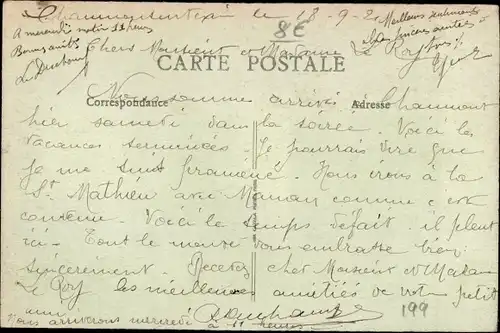 Chaumont en Vexin le 18-9-2
8€
A mercredi matin 11 heures
Bonne santé
Meilleurs
sincères amitiés à
tous
Chers Monsieur et Madame Le Roy
CARTE POSTALE
Correspondance
Adresse
Nous sommes arrivés à Chaumont
hier samedi dans la soirée. Voici les
vacances terminées. Je pourrais dire que
je me suis promené. Nous irons à la
St. Mathieu avec Maman comme c'est
convenu. Voici le temps défait. il pleut
ici. Tout le monde vous embrasse bien
sincèrement. Recevez cher Monsieur et Madame
Le Roy les meilleures amitiés de votre petit
ami
Nous arriverons mercredi à 11 heures.
199